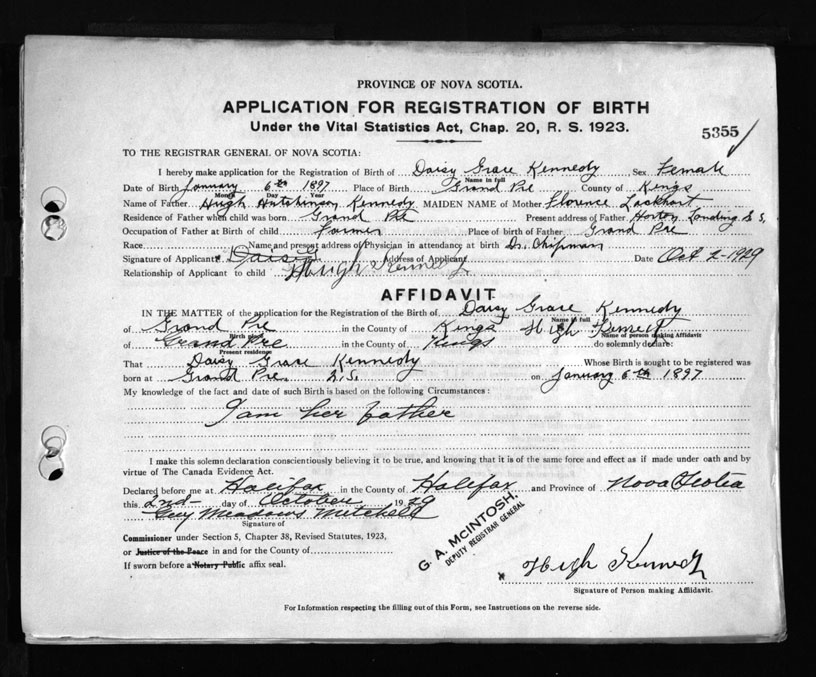 PROVINCE OF NOVA SCOTIA.
APPLICATION FOR REGISTRATION OF BIRTH
Under the Vital Statistics Act, Chap. 20, R. S. 1923.
5355
TO THE REGISTRAR GENERAL OF NOVA SCOTIA:
I hereby make application for the Registration of Birth of Daisy Grace Kennedy Sex Female
Name in full
Date of Birth January 6th 1897 Place of Birth Grand Pre County of Kings
Month Day Year
Name of Father Hugh Hutchinson Kennedy MAIDEN NAME of Mother Florence Lockhart
Residence of Father when child was born Grand Pre Present address of Father Horton Landing N.S.
Occupation of Father at Birth of child Farmer Place of birth of Father Grand Pre
Race Name and present address of Physician in attendance at birth Dr. Chipman
Signature of Applicant Daisy G Address of Applicant Date Oct 2-1929
Relationship of Applicant to child Hugh Kennedy
AFFIDAVIT
IN THE MATTER of the application for the Registration of the Birth of Daisy Grace Kennedy
Name in full
of Grand Pre in the County of Kings Hugh Kennedy
Birth place
Name of person making Affidavit
of Grand Pre in the County of Kings do solemnly declare:
Present residence
That Daisy Grace Kennedy Whose Birth is sought to be registered was
born at Grand Pre. N.S. on January 6th 1897
My knowledge of the fact and date of such Birth is based on the following Circumstances:
I am her father
I make this solemn declaration conscientiously believing it to be true, and knowing that it is of the same force and effect as if made under oath and by
virtue of The Canada Evidence Act.
Declared before me at Halifax in the County of Halifax and Province of Nova Scotia
this 2nd day of October 1929
Guy Meadows Mitchell
Signature of
G. A. McINTOSH,
DEPUTY REGISTRAR GENERAL
Commissioner under Section 5, Chapter 38, Revised Statutes, 1923,
or Justice of the Peace in and for the County of
If sworn before a Notary Public affix seal.
x Hugh Kennedy
Signature of Person making Affidavit.
For Information respecting the filling out of this Form, see Instructions on the reverse side.